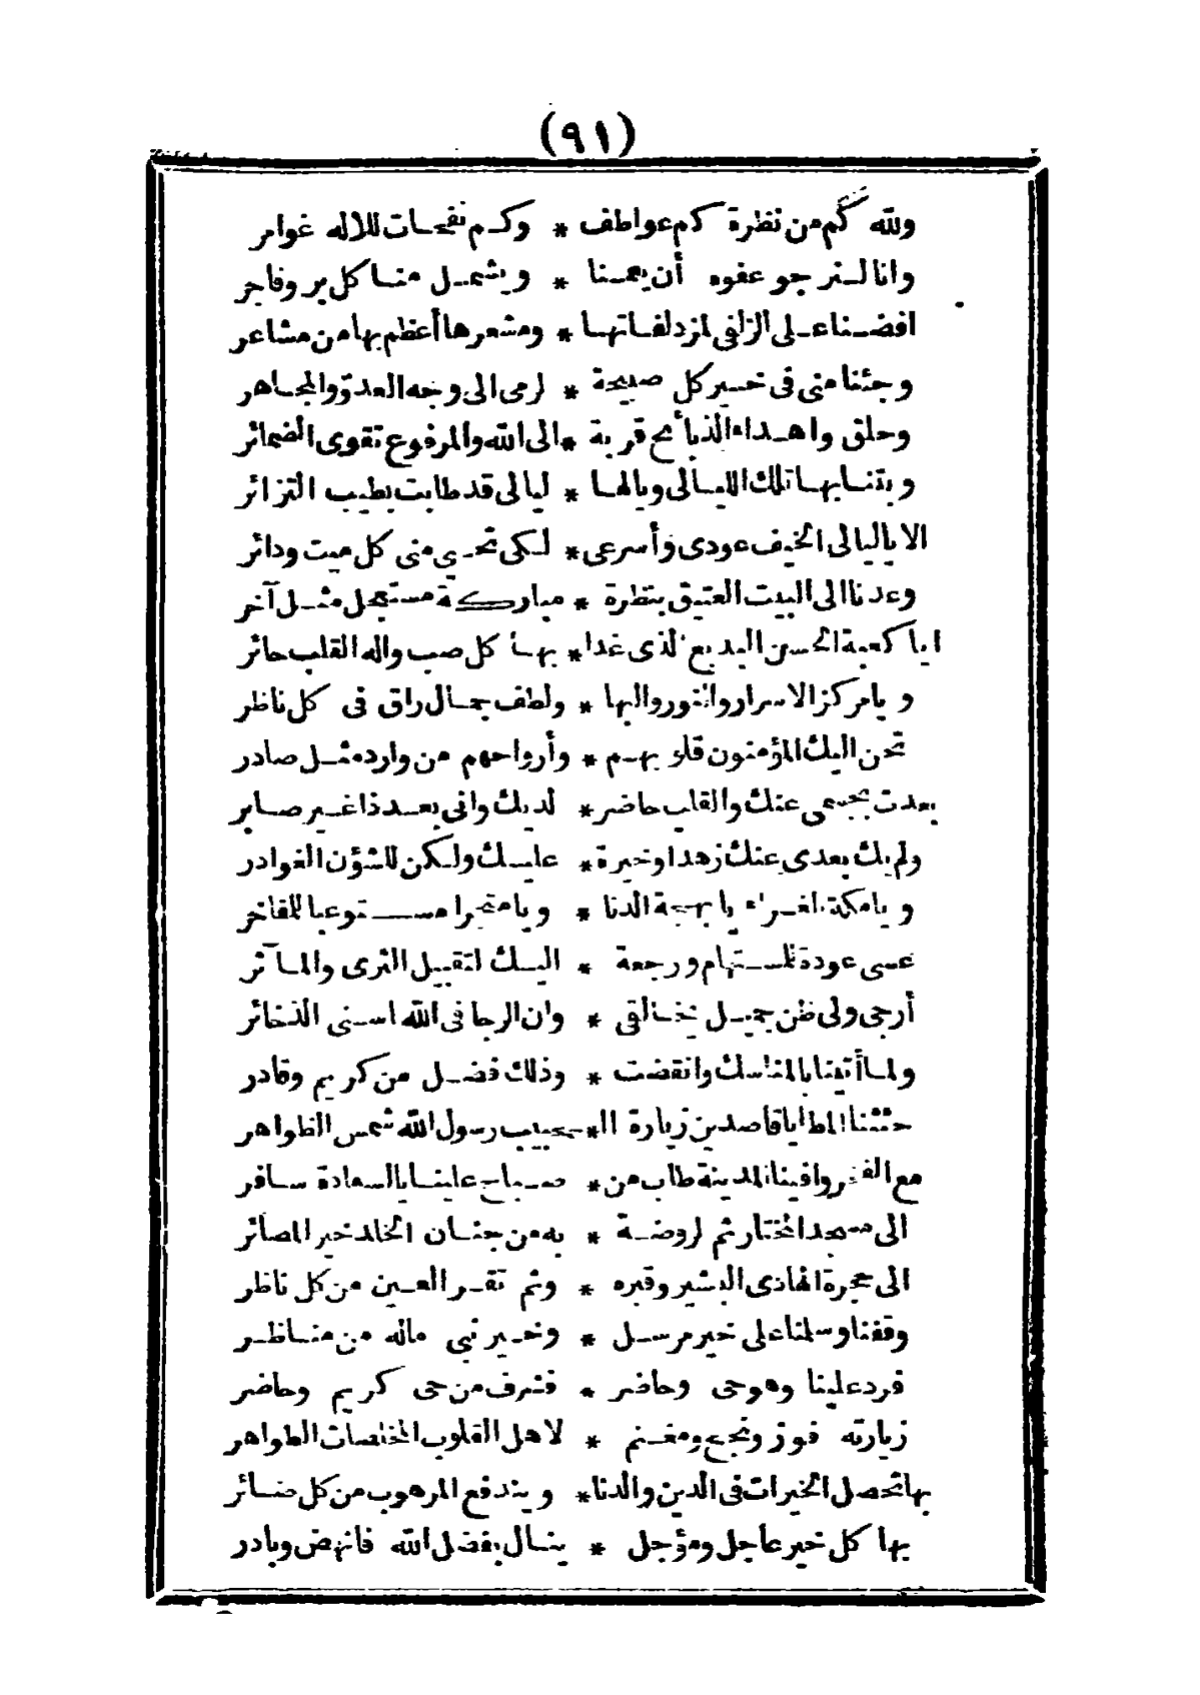 (٩١)
ولله كم من نظرة كم عواطف * وكم نفحات للاله غوامر
وانا لنرجو عفوه أن يعمنا * ويشمل منا كل بر وفاجر
افضنا على الزلفى لمزدلفاتها * ومشعرها أعظم بها من مشاعر
وجئنا منى فى خير كل صبيحة * لرمى الى وجه العدو المجاهر
وحلق واهداء الذبائح قربة * الى الله والمرفوع تقوى الضمائر
وبتنا بها تلك الليالى ويالها * ليالى قد طابت بطيب التزائر
الا ياليالى الخيف عودى وأسرعى * لكى تحيى منى كل ميت وداثر
وعدنا الى البيت العتيق بنظرة * مباركة مستعجل مثل آخر
ايا كعبة الحسن البديع الذى غدا * بها كل صب واله القلب حائر
ويامركز الاسرار والنور والبها * ولطف جمال راق فى كل ناظر
تحن اليك المؤمنون قلوبهم * وأرواحهم من وارد مثل صادر
بعدت بجسمى عنك والقلب حاضر * لديك وانى بعد ذا غير صابر
ولم يك بعدى عنك زهدا وخيرة * عليك ولكن للشؤن الغوادر
ويامكة الغراء يا بهجة الدنا * ويا مفخرا مستوعبا للمفاخر
عسى عودة للمستهام ورجعة * اليك لتقبيل الثرى والمآثر
أرجى ولى ظن جميل بخالقى * وان الرجا فى الله اسنى الذخائر
ولما أتينا بالمناسك وانقضت * وذلك فضل من كريم وقادر
حثثنا المطايا قاصدين زيارة ال * حبيب رسول الله شمس الظواهر
مع الفجر وافينا المدينة طاب من * صباح علينا بالسعادة سافر
الى مسجد المختار ثم لروضة * به من جنان الخلد خير المصائر
الى حجرة الهادى البشير وقبره * وثم تقر العين من كل ناظر
وقفنا وسلمنا على خير مرسل * وخير نبى ماله من مناظر
فرد علينا وهو حى وحاضر * فشرف من حى كريم وحاضر
زيارته فوز ونجح ومغنم * لاهل القلوب المخلصات الطواهر
بها تحصل الخيرات فى الدين والدنا * ويندفع المرهوب من كل ضائر
بها كل خير عاجل ومؤجل * ينال بفضل الله فانهض وبادر